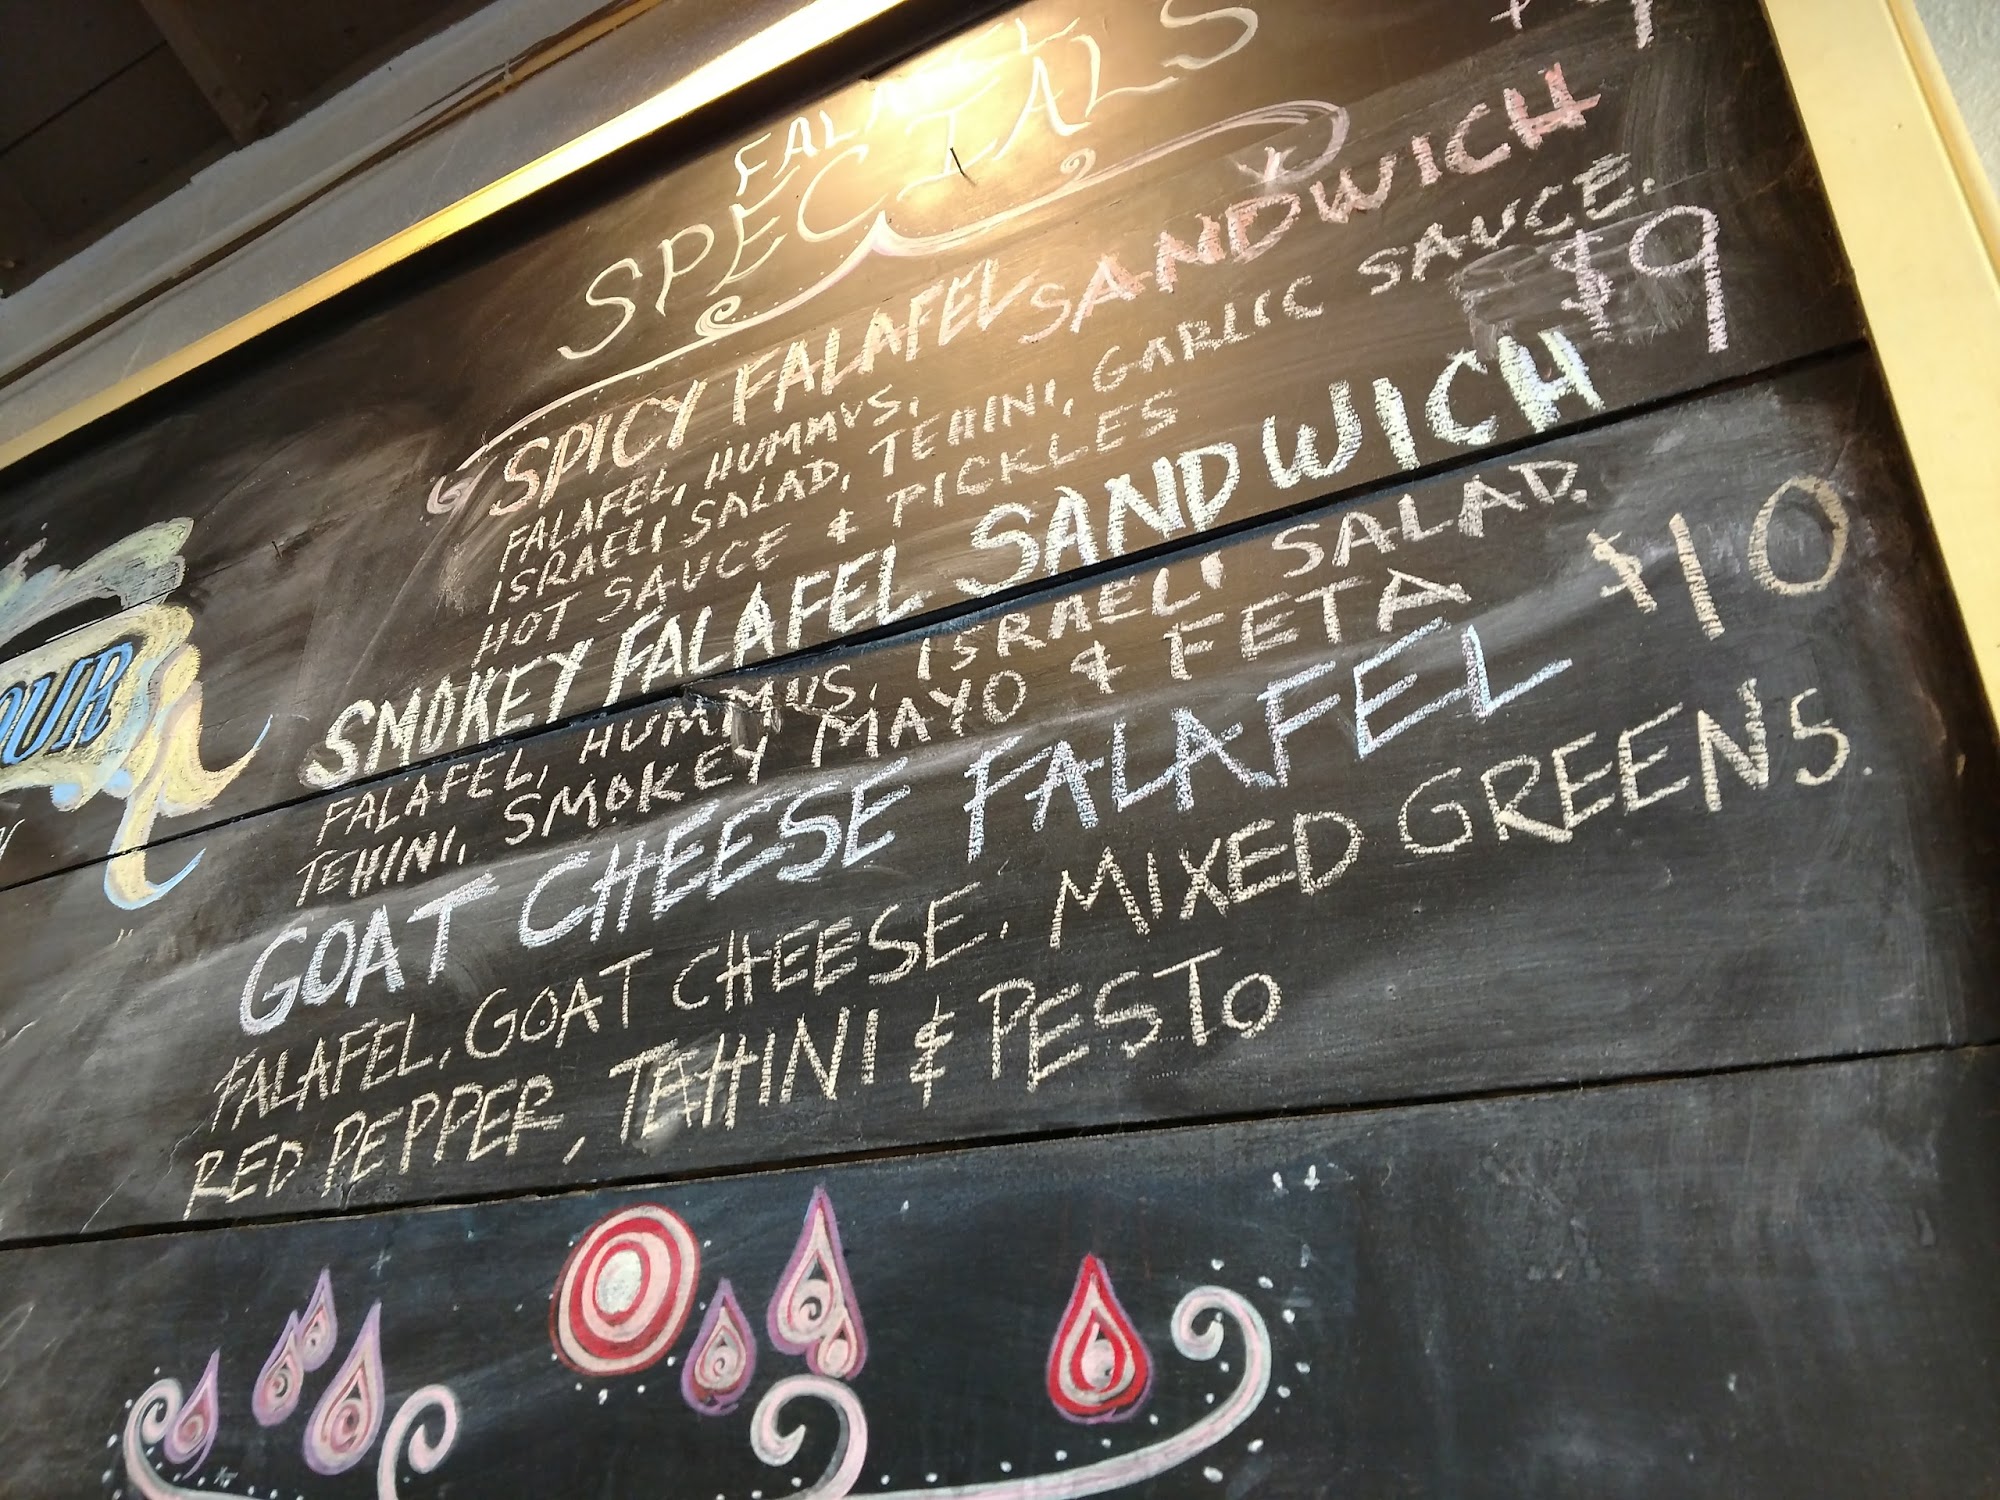 FALAFEL
SPECIALS
SPICY FALAFEL SANDWICH
FALAFEL, HUMMUS,
ISRAELI SALAD, TEHINI, GARLIC SAUCE.
HOT SAUCE & PICKLES
$9
SMOKEY FALAFEL SANDWICH
FALAFEL, HUMMUS, ISRAELI SALAD.
TEHINI, SMOKEY MAYO & FETA
$10
GOAT CHEESE FALAFEL
FALAFEL, GOAT CHEESE, MIXED GREENS.
RED PEPPER, TAHINI & PESTO
OUR